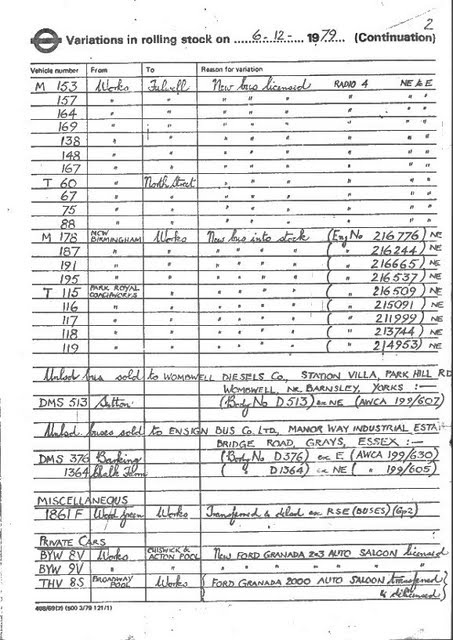 2
Variations in rolling stock on 6-12- 1979 (Continuation)
Vehicle number From To Reason for variation
M 153 Works Fulwell New bus licensed RADIO 4 NE & E
157 " " " " " " " "
164 " " " " " " " "
169 " " " " " " " "
138 " " " " " " " "
148 " " " " " " " "
167 " " " " " " " "
T 60 " North Street " " " " " "
67 " " " " " " " "
75 " " " " " " " "
88 " " " " " " " "
M 178 NEW BIRMINGHAM Works New bus into stock (Eng No 216776) NE
187 " " " " " " ( " 216244) NE
191 " " " " " " ( " 216665) NE
195 " " " " " " ( " 216537) NE
T 115 PARK ROYAL COACHWORKS " " " " " ( " 216509) NE
116 " " " " " " ( " 215091) NE
117 " " " " " " ( " 211999) NE
118 " " " " " " ( " 213744) NE
119 " " " " " " ( " 214953) NE
Unlsd bus sold to WOMBWELL DIESELS Co., STATION VILLA, PARK HILL RD
WOMBWELL, NR. BARNSLEY, YORKS :—
DMS 513 Sutton (Body No D513) ex NE (AWCA 199/607)
Unlsd buses sold to ENSIGN BUS Co. LTD, MANOR WAY INDUSTRIAL ESTA
BRIDGE ROAD, GRAYS, ESSEX :—
DMS 376 Barking (Body No D376) ex E (AWCA 199/630)
1364 Chalk Farm ( " D1364) ex NE ( " 199/605)
MISCELLANEOUS
1861 F Wood Green Works Transferred & dlsd ex RSE (BUSES) (Gp2)
PRIVATE CARS
BYW 8V Works CHISWICK & ACTON POOL New FORD GRANADA 2•3 AUTO SALOON licensed
BYW 9V " " " " " " "
THV 8S BROADWAY POOL Works { FORD GRANADA 2000 AUTO SALOON transferred
& delicensed }
408/69DS (500 3/79 121/1)